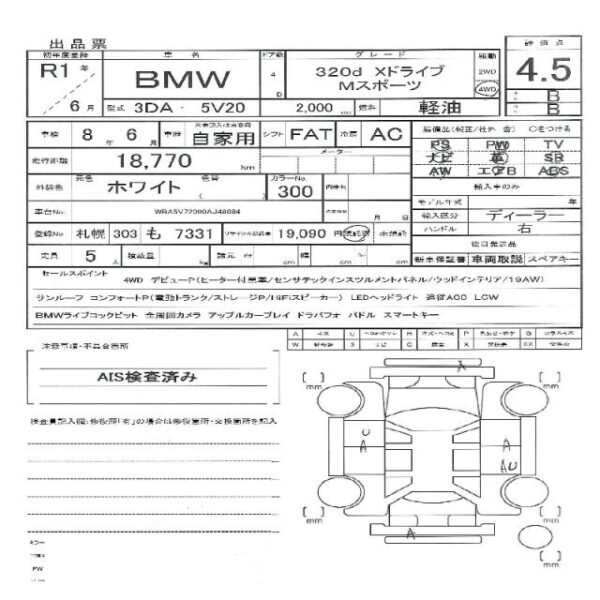 出品票
初年度登録 車名 ドア数 グレード 駆動 評価点
R1年 BMW 4 D 320d Xドライブ 2WD 4.5
Mスポーツ 4WD
6月 B
型式 3DA - 5V20 2,000 cc 燃料 軽油 B
車検 8年 6月 車歴 自家用 シフト FAT 冷房 AC 装備品(純正/社外 含) ○をつける
PS PW TV
走行距離 18,770 km メーター ナビ 革 SR
AW エアB ABS
外装色 元色 ホワイト 色替 カラーNo. 300 輸入車のみ
車台No. WBA5V72090AJ48684 月 日 モデル年式 年
輸入区分 ディーラー
登録No 札幌 303 も 7331 リサイクル預託金 19,090 円 預託済 未預託 ハンドル 右
後日発送品
定員 5人 積載量 kg 諸元 cm 幅 cm cm 新車保証書 車両取説 スペアキー
セールスポイント
4WD デビューP(ヒーター付黒革/センサテックインスツルメントパネル/ウッドインテリア/19AW)
サンルーフ コンフォートP(電動トランク/ストレージP/HiFiスピーカー) LEDヘッドライト 追従ACC LCW
BMWライブコックピット 全周囲カメラ アップルカープレイ ドラパフォ パドル スマートキー
注意事項・不具合箇所
AIS検査済み
検査員記入欄:修復歴「有」の場合は修復箇所・交換箇所を記入
A
[ ] mm
[ ] mm
U
A
A
AU
[ ] mm
[ ] mm
A
[ ] mm
PW